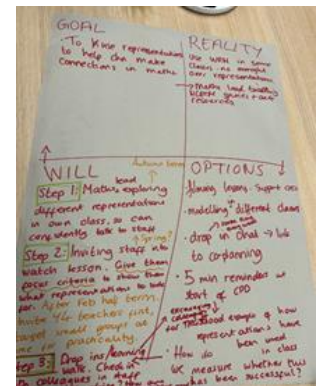 GOAL
· To use representations
to help chn make
connections in maths.
REALITY
Use WRM in some
classes - no oversight
over representations
→ Maths lead
games + own
resources
WILL
Autumn term
Step 1: Maths lead exploring
different representations
in own class, so can
confidently talk to staff
Spring?
Step 2: Inviting staff into
watch lesson. Give them
focus criteria to show them
what representations to look
for. After Feb half term,
teachers first,
target small groups at
for practicality.
Step 3: Drop ins/learning
walk. Check in
to colleagues in staff
OPTIONS
filming lessons. Support
· modelling different classes
· drop in chat → link
to coplanning
· 5 min reminders at
start of CPD
encouraging
colleagues
for good example of how
representations have
been used
in class
· How do
we measure whether this
has been successful?